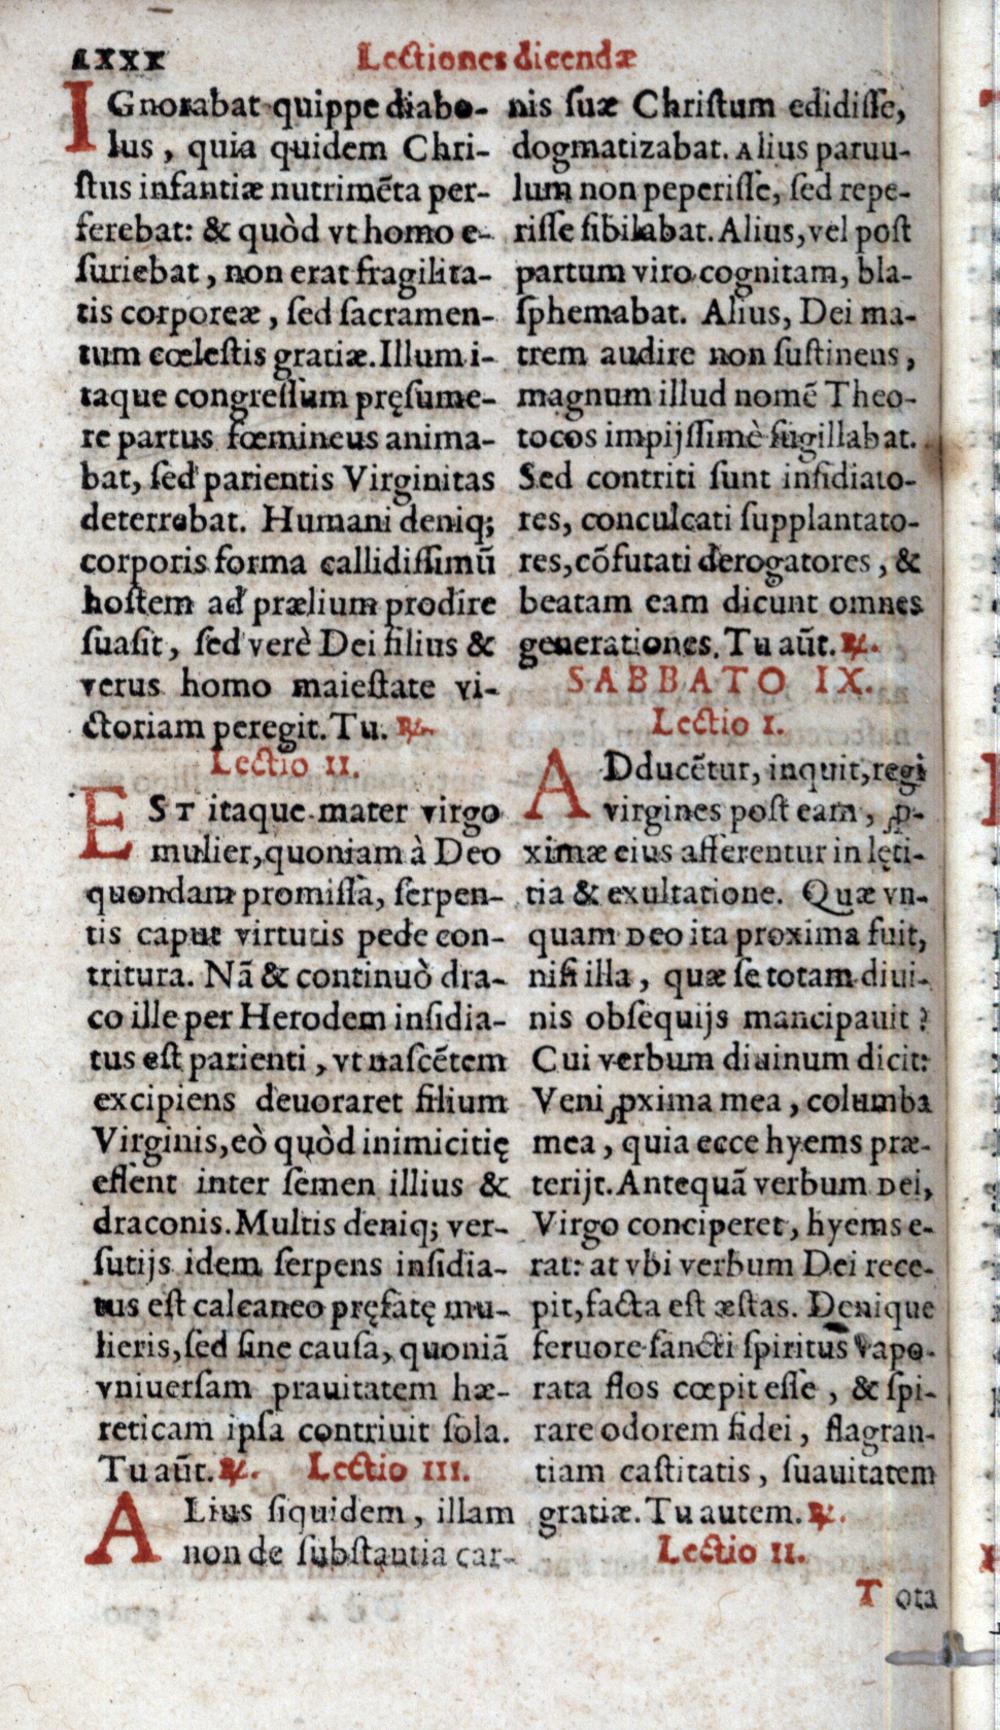 LXXX
Lectiones dicendæ
IGnorabat quippe diabo-
lus, quia quidem Chri-
ſtus infantiæ nutrimẽta per-
ferebat: & quòd vt homo e-
ſuriebat, non erat fragilita-
tis corporeæ, ſed ſacramen-
tum cœleſtis gratiæ. Illum i-
taque congreſſum pręſume-
re partus fœmineus anima-
bat, ſed parientis Virginitas
deterrebat. Humani deniq;
corporis forma callidiſſimũ
hoſtem ad prælium prodire
ſuaſit, ſed verè Dei filius &
verus homo maieſtate vi-
ctoriam peregit. Tu. ℟.
Lectio II.
EST itaque mater virgo
mulier, quoniam à Deo
quondam promiſſa, ſerpen-
tis caput virtutis pede con-
tritura. Nã & continuò dra-
co ille per Herodem inſidia-
tus eſt parienti, vt naſcẽtem
excipiens deuoraret filium
Virginis, eò quòd inimicitię
eſſent inter ſemen illius &
draconis. Multis deniq; ver-
ſutijs idem ſerpens inſidia-
tus eſt calcaneo pręfatę mu-
lieris, ſed ſine cauſa, quoniã
vniuerſam prauitatem hæ-
reticam ipſa contriuit ſola.
Tu aũt. ℟. Lectio III.
ALius ſiquidem, illam
non de ſubſtantia car-
nis ſuæ Chriſtum edidiſſe,
dogmatizabat. Alius paruu-
lum non peperiſſe, ſed repe-
riſſe ſibilabat. Alius, vel poſt
partum viro cognitam, bla-
ſphemabat. Alius, Dei ma-
trem audire non ſuſtinens,
magnum illud nomẽ Theo-
tocos impijſſimè ſugillabat.
Sed contriti ſunt inſidiato-
res, conculcati ſupplantato-
res, cõfutati derogatores, &
beatam eam dicunt omnes
generationes. Tu aũt. ℟.
SABBATO IX.
Lectio I.
ADducẽtur, inquit, regi
virgines poſt eam, ꝓ-
ximæ eius afferentur in lęti-
tia & exultatione. Quæ vn-
quam Deo ita proxima fuit,
niſi illa, quæ ſe totam diui-
nis obſequijs mancipauit?
Cui verbum diuinum dicit:
Veni ꝓxima mea, columba
mea, quia ecce hyems præ-
terijt. Antequã verbum Dei,
Virgo conciperet, hyems e-
rat: at vbi verbum Dei rece-
pit, facta eſt æſtas. Denique
feruore ſancti ſpiritus vapo-
rata flos cœpit eſſe, & ſpi-
rare odorem fidei, flagran-
tiam caſtitatis, ſuauitatem
gratiæ. Tu autem. ℟.
Lectio II.
Tota